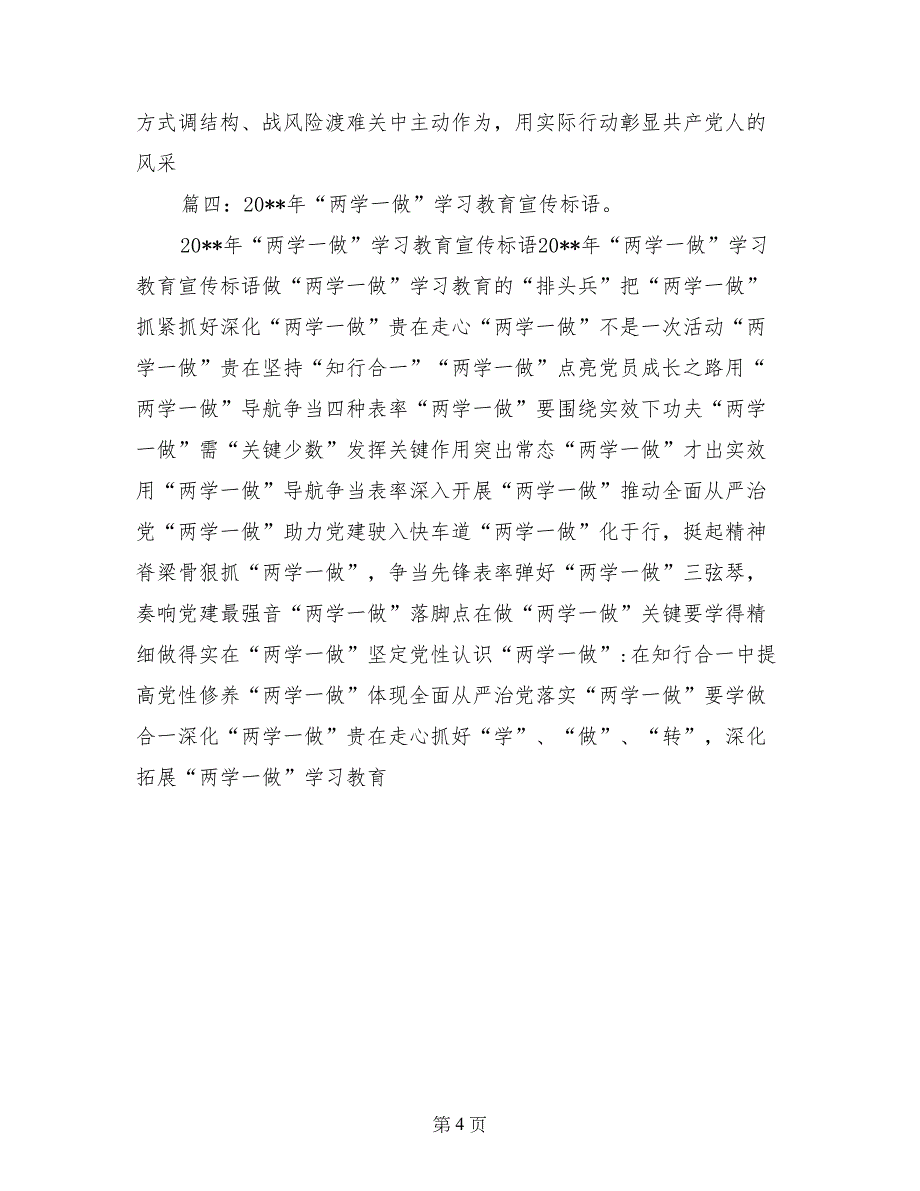 方式调结构、战风险渡难关中主动作为，用实际行动彰显共产党人的
风采
篇四：20**年“两学一做”学习教育宣传标语。
20**年“两学一做”学习教育宣传标语20**年“两学一做”学习
教育宣传标语做“两学一做”学习教育的“排头兵”把“两学一做”
抓紧抓好深化“两学一做”贵在走心“两学一做”不是一次活动“两
学一做”贵在坚持“知行合一”“两学一做”点亮党员成长之路用“
两学一做”导航争当四种表率“两学一做”要围绕实效下功夫“两学
一做”需“关键少数”发挥关键作用突出常态“两学一做”才出实效
用“两学一做”导航争当表率深入开展“两学一做”推动全面从严治
党“两学一做”助力党建驶入快车道“两学一做”化于行，挺起精神
脊梁骨狠抓“两学一做”，争当先锋表率弹好“两学一做”三弦琴，
奏响党建最强音“两学一做”落脚点在做“两学一做”关键要学得精
细做得实在“两学一做”坚定党性认识“两学一做”:在知行合一中提
高党性修养“两学一做”体现全面从严治党落实“两学一做”要学做
合一深化“两学一做”贵在走心抓好“学”、“做”、“转”，深化
拓展“两学一做”学习教育
第 4 页